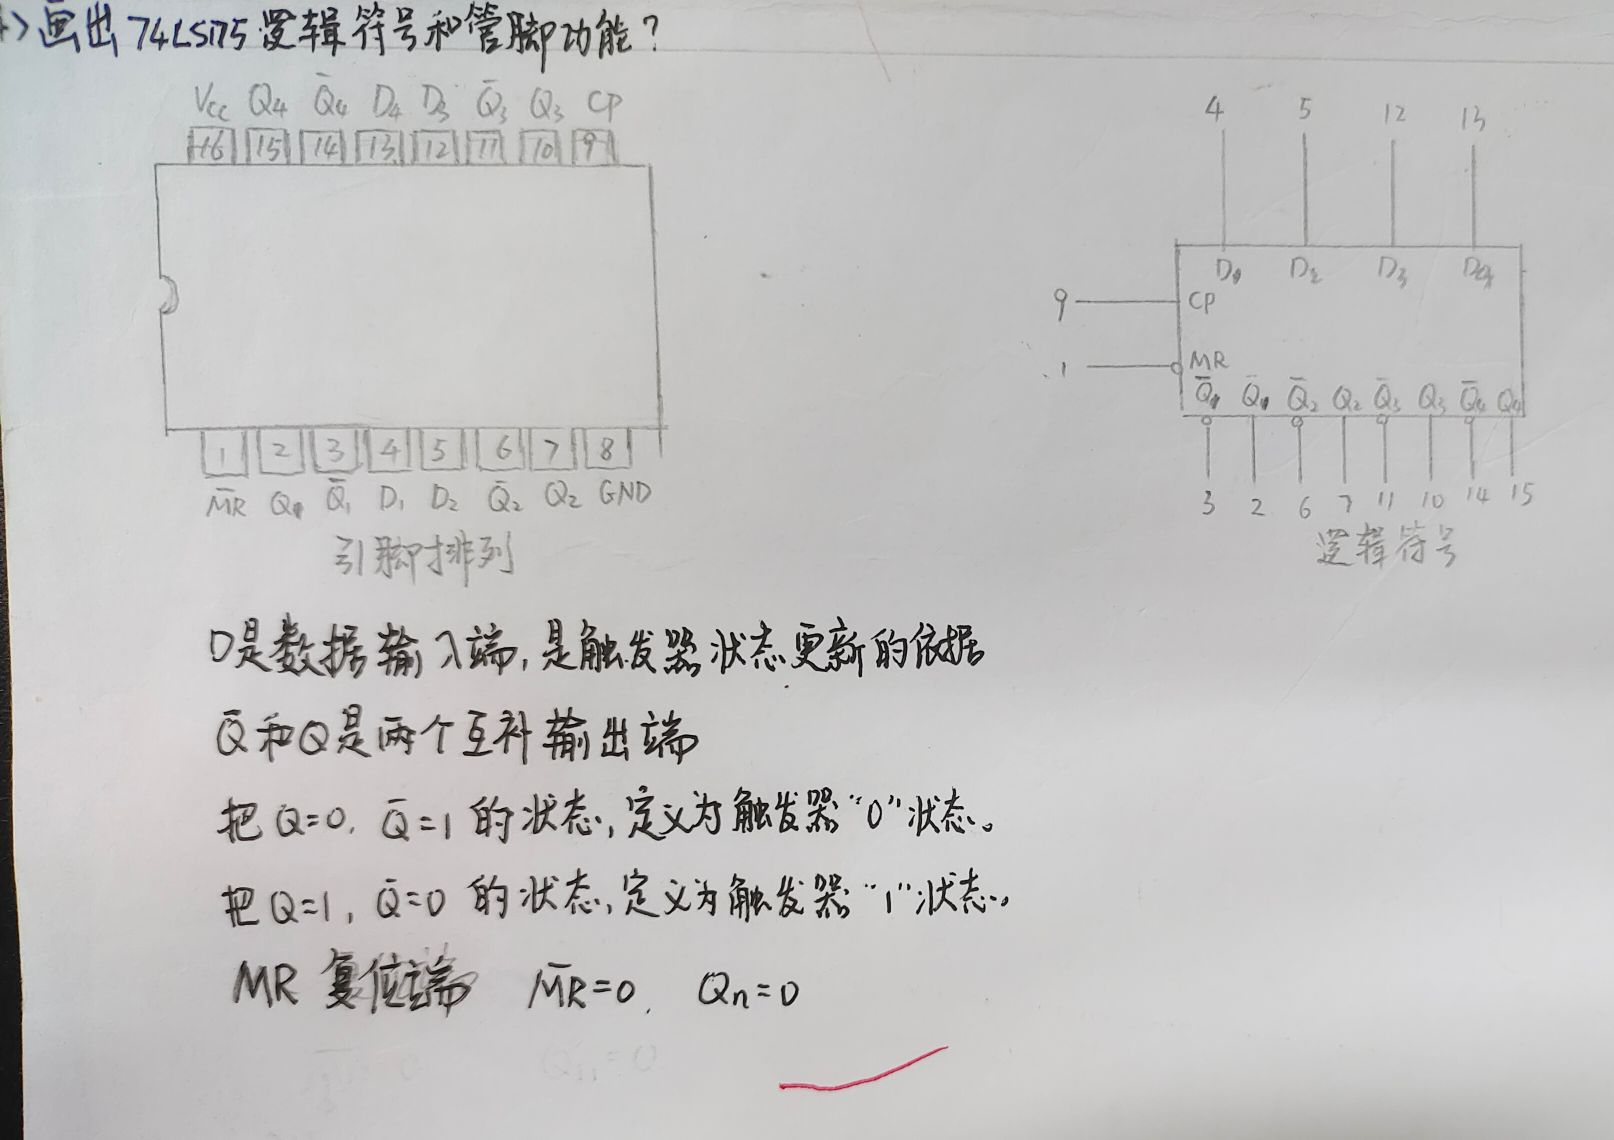 4>画出74LS175逻辑符号和管脚功能?
Vcc Q4 Q̄4 D4 D3 Q̄3 Q3 CP
16 15 14 13 12 11 10 9
1 2 3 4 5 6 7 8
M̄R Q1 Q̄1 D1 D2 Q̄2 Q2 GND
引脚排列
4 5 12 13
D1 D2 D3 D4
9 CP
1 MR
Q̄1 Q̄1 Q̄2 Q2 Q̄3 Q3 Q̄4 Q4
3 2 6 7 11 10 14 15
逻辑符号
D是数据输入端,是触发器状态更新的依据
Q̄和Q是两个互补输出端
把Q=0, Q̄=1的状态,定义为触发器“0”状态。
把Q=1, Q̄=0的状态,定义为触发器“1”状态。
MR 复位端 M̄R=0, Qn=0